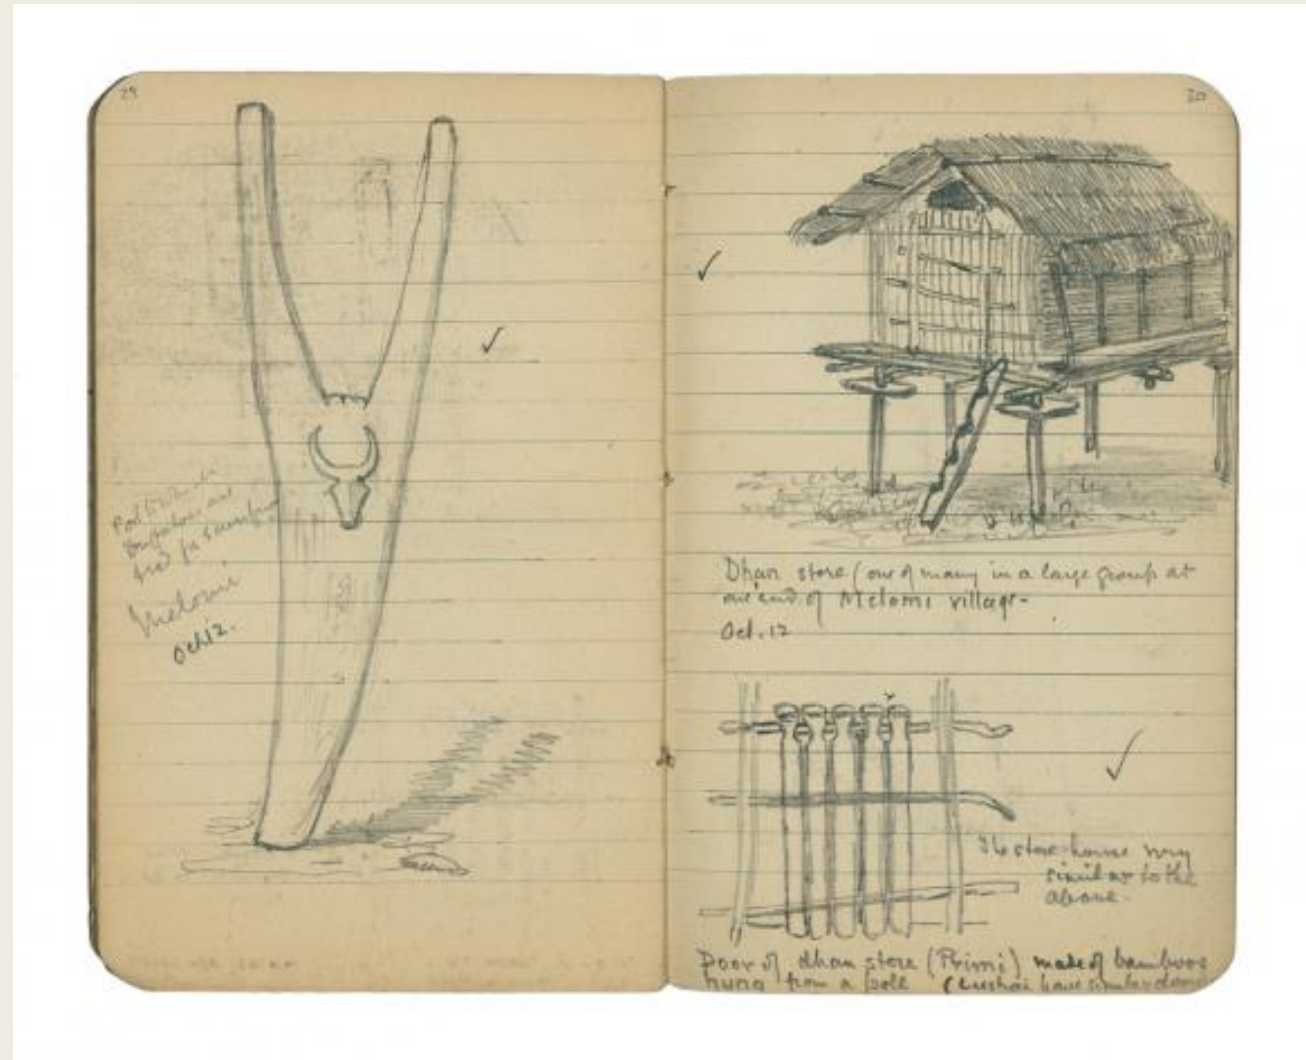 29
Post to which
buffaloes are
tied for sacrifice
Melomi
Oct 12.
30
Dhan store (one of many in a large group at
one end of Melomi village -
Oct. 12
store-house very
similar to the
above.
Door of dhan store (Primi) made of bamboos
hung from a pole (Lushai have similar doors